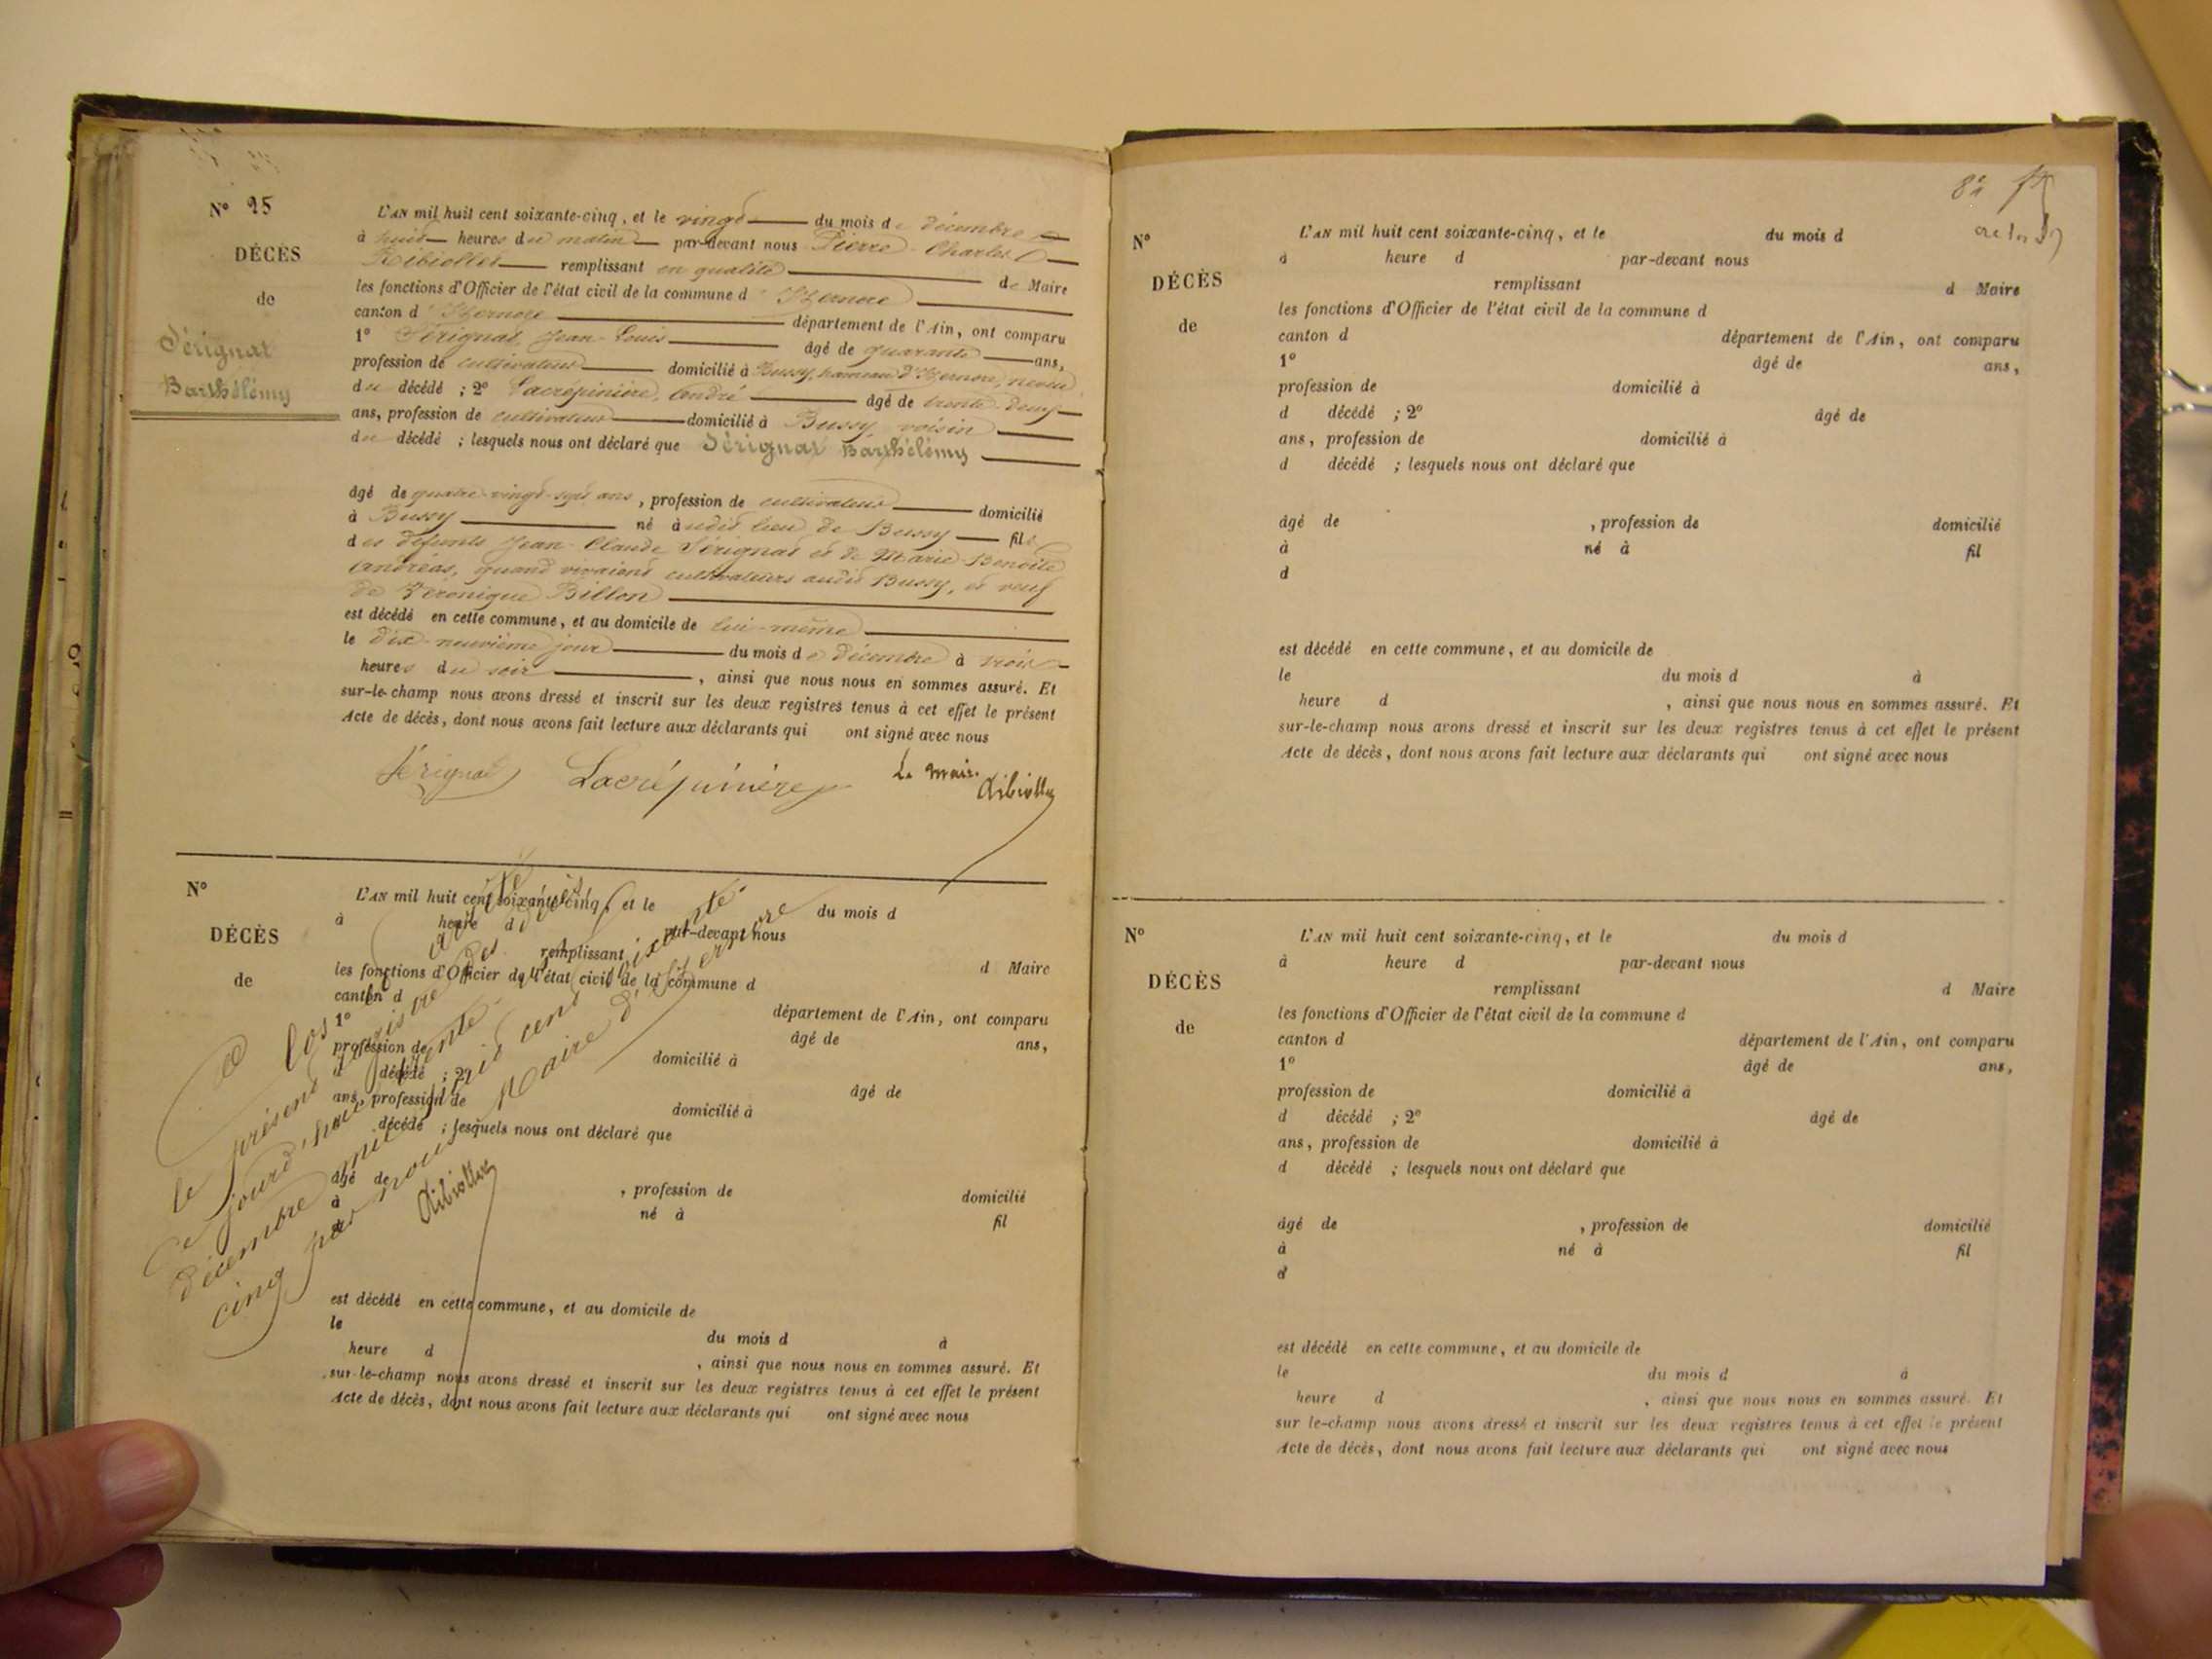 N° 25
DÉCÈS
de
Sérignat
Barthélémy
L'AN mil huit cent soixante-cinq, et le vingt du mois de décembre
à huit heures du matin par-devant nous Pierre Charles
Ribiollet remplissant en qualité de Maire
les fonctions d'Officier de l'état civil de la commune d'Izernore
canton d'Izernore département de l'Ain, ont comparu
1° Sérignat, Jean-Louis âgé de quarante ans,
profession de cultivateur domicilié à Bussy, hameau d'Izernore, neveu
du décédé ; 2° Lacrépinière, André âgé de trente-deux
ans, profession de cultivateur domicilié à Bussy, voisin
du décédé ; lesquels nous ont déclaré que Sérignat Barthélémy
âgé de quatre-vingt-sept ans, profession de cultivateur domicilié
à Bussy né audit lieu de Bussy fils
des défunts Jean-Claude Sérignat et de Marie-Benoîte
Andréas, quand vivaient cultivateurs audit Bussy, et veuf
de Véronique Billon
est décédé en cette commune, et au domicile de lui-même
le dix-neuvième jour du mois de décembre à trois
heures du soir, ainsi que nous nous en sommes assuré. Et
sur-le-champ nous avons dressé et inscrit sur les deux registres tenus à cet effet le présent
Acte de décès, dont nous avons fait lecture aux déclarants qui ont signé avec nous
Sérignat Lacrépinière Le maire
Ribiollet
N°
DÉCÈS
de
L'AN mil huit cent soixante-cinq, et le du mois d
à heure d par-devant nous
remplissant d Maire
les fonctions d'Officier de l'état civil de la commune d
canton d département de l'Ain, ont comparu
1° âgé de ans,
profession de domicilié à
d décédé ; 2° âgé de
ans, profession de domicilié à
d décédé ; lesquels nous ont déclaré que
âgé de , profession de domicilié
à né à fil
d
est décédé en cette commune, et au domicile de
le du mois d à
heure d , ainsi que nous nous en sommes assuré. Et
sur-le-champ nous avons dressé et inscrit sur les deux registres tenus à cet effet le présent
Acte de décès, dont nous avons fait lecture aux déclarants qui ont signé avec nous
Clos et arrêté
le présent registre des décès
ce jourd'hui trente
décembre mil huit cent soixante
cinq par nous Maire d'Izernore
Ribiollet
N°
DÉCÈS
de
L'AN mil huit cent soixante-cinq, et le du mois d
à heure d par-devant nous
remplissant d Maire
les fonctions d'Officier de l'état civil de la commune d
canton d département de l'Ain, ont comparu
1° âgé de ans,
profession de domicilié à
d décédé ; 2° âgé de
ans, profession de domicilié à
d décédé ; lesquels nous ont déclaré que
âgé de , profession de domicilié
à né à fil
d
est décédé en cette commune, et au domicile de
le du mois d à
heure d , ainsi que nous nous en sommes assuré. Et
sur-le-champ nous avons dressé et inscrit sur les deux registres tenus à cet effet le présent
Acte de décès, dont nous avons fait lecture aux déclarants qui ont signé avec nous
N°
DÉCÈS
de
L'AN mil huit cent soixante-cinq, et le du mois d
à heure d par-devant nous
remplissant d Maire
les fonctions d'Officier de l'état civil de la commune d
canton d département de l'Ain, ont comparu
1° âgé de ans,
profession de domicilié à
d décédé ; 2° âgé de
ans, profession de domicilié à
d décédé ; lesquels nous ont déclaré que
âgé de , profession de domicilié
à né à fil
d
est décédé en cette commune, et au domicile de
le du mois d à
heure d , ainsi que nous nous en sommes assuré. Et
sur le-champ nous avons dressé et inscrit sur les deux registres tenus à cet effet le présent
Acte de décès, dont nous avons fait lecture aux déclarants qui ont signé avec nous